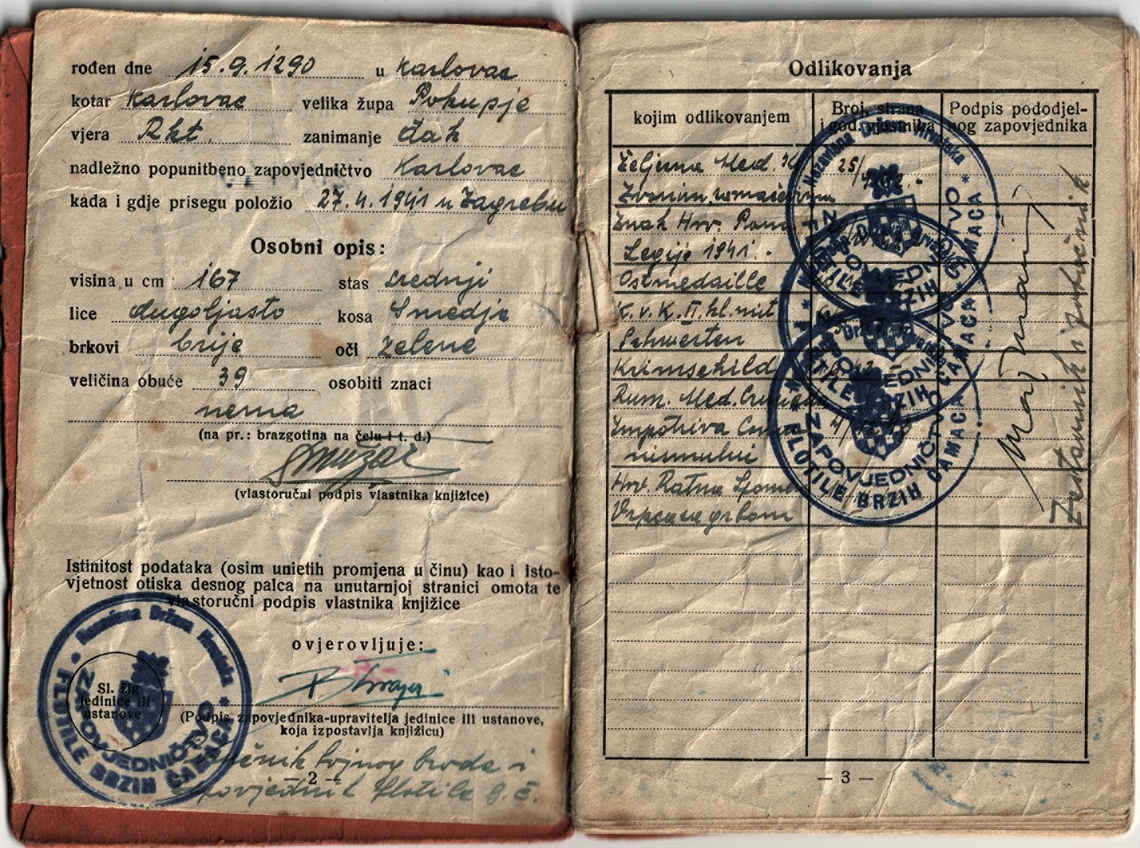 rođen dne 15.9.1290 u Karlovac
kotar Karlovac velika župa Pokupje
vjera Rkt. zanimanje Đak
nadležno popunitbeno zapovjedničtvo Karlovac
kada i gdje prisegu položio 27.4.1941 u Zagrebu
Osobni opis:
visina u cm 167 stas srednji
lice dugoljasto kosa Smedja
brkovi brije oči zelene
veličina obuće 39 osobiti znaci
nema
(na pr.: brazgotina na čelu i t. d.)
(vlastoručni podpis vlastnika knjižice)
Istinitost podataka (osim unietih promjena u činu) kao i isto-
vjetnost otiska desnog palca na unutarnjoj stranici omota te
vlastoručni podpis vlastnika knjižice
ovjerovljuje:
Sl. žig
jedinice ili
ustanove
Nezavisna Država Hrvatska
ZAPOVJEDNIČTVO
FLOTILE BRZIH ČAMACA
(Podpis zapovjednika-upravitelja jedinice ili ustanove,
koja izpostavlja knjižicu)
bojnog broda i
zapovjednik flotile b. č.
— 2 —
Odlikovanja
kojim odlikovanjem
Broj, strana
i god. vjesnika
Podpis pododjel-
nog zapovjednika
Željezna Med. K.
Zvonimirovom
Znak Hrv. Pom.
Legije 1941.
Ostmedaille
K.v.K. II. kl. mit
Schwerten
Krimschild
Rum. Med. Cruciada
Impotriva
Hrv. Ratna Spomen
Vrpca sa grbom
Nezavisna Država Hrvatska
ZAPOVJEDNIČTVO
FLOTILE BRZIH ČAMACA
— 3 —